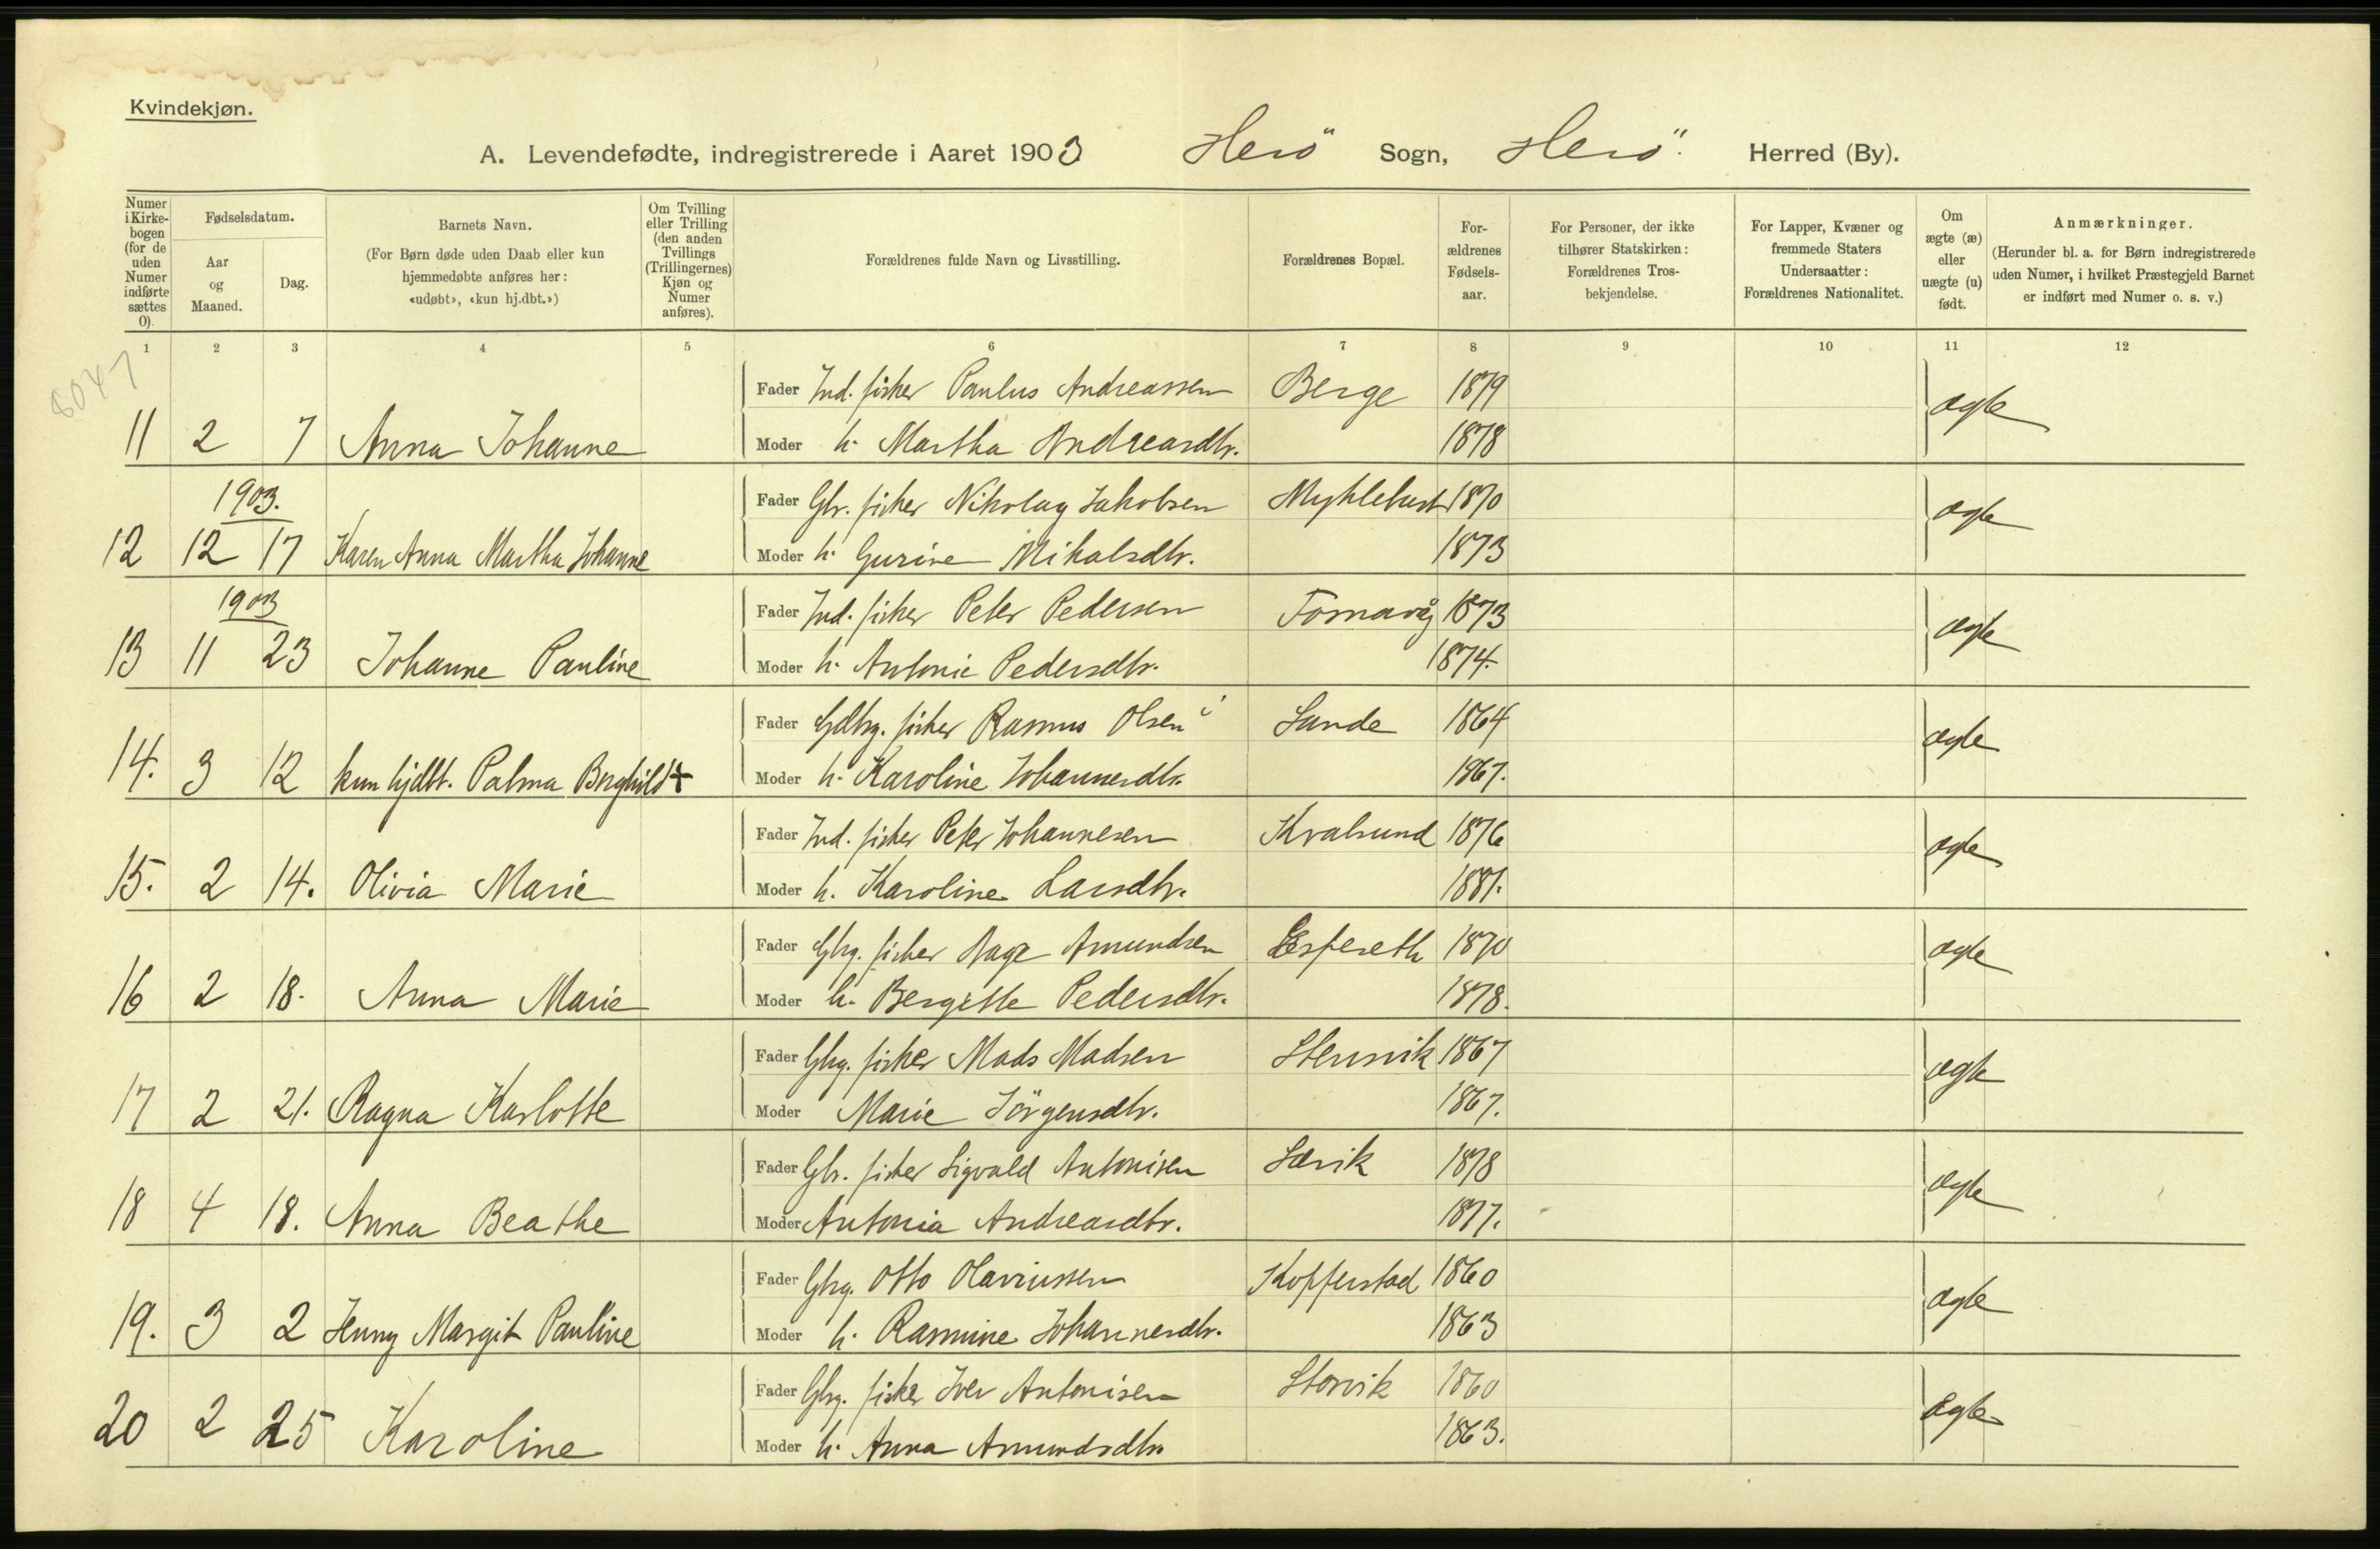 Kvindekjøn.
A. Levendefødte, indregistrerede i Aaret 1903 Herö Sogn, Herö Herred (By).
Numer i Kirkebogen (for de uden Numer indførte sættes 0).
Fødselsdatum.
Aar og Maaned.
Dag.
Barnets Navn.
(For Børn døde uden Daab eller kun hjemmedøbte anføres her: «udøbt», «kun hj.dbt.»)
Om Tvilling eller Trilling (den anden Tvillings (Trillingernes) Kjøn og Numer anføres).
Forældrenes fulde Navn og Livsstilling.
Forældrenes Bopæl.
Forældrenes Fødselsaar.
For Personer, der ikke tilhører Statskirken: Forældrenes Trosbekjendelse.
For Lapper, Kvæner og fremmede Staters Undersaatter: Forældrenes Nationalitet.
Om ægte (æ) eller uægte (u) født.
Anmærkninger.
(Herunder bl. a. for Børn indregistrerede uden Numer, i hvilket Præstegjeld Barnet er indført med Numer o. s. v.)
1 2 3 4 5 6 7 8 9 10 11 12
8047
Fader Ind. fisker Paulus Andreassen Berge 1879 ægte
11 2 7 Anna Johanne Moder h. Martha Andreasdtr. 1878
1903. Fader Gbr. fisker Nikolay Jakobsen Myklebust 1870 ægte
12 12 17 Karen Anna Martha Johanne Moder h. Gurine Mikalsdtr. 1873
1903 Fader Ind. fisker Peter Pedersen Fosnavåg 1873 ægte
13 11 23 Johanne Pauline Moder h. Antonie Pedersdtr. 1874.
Fader Gdbrg. fisker Rasmus Olsen Sande 1864 ægte
14. 3 12 kun hjdbt. Palma Borghild + Moder h. Karoline Johannesdtr. 1867.
Fader Ind. fisker Peter Johannesen Kvalsund 1876 ægte
15. 2 14. Olivia Marie Moder h. Karoline Larsdtr. 1881.
Fader Gbrg. fisker Aage Amundsen Espeseth 1870 ægte
16 2 18. Anna Marie Moder h. Bergitte Pedersdtr. 1878.
Fader Gbrg. fisker Mads Madsen Stensvik 1867 ægte
17 2 21. Ragna Karlotte Moder Marie Jörgensdtr. 1867.
Fader Gbr. fisker Sigvald Antonisen Sævik 1878 ægte
18 4 18. Anna Beathe Moder Antonia Andreasdtr. 1877.
Fader Gbrg. Otto Olavriussen Kopperstad 1860 ægte
19. 3 2 Jenny Margit Pauline Moder h. Rasmine Johannesdtr. 1863
Fader Gbrg. fisker Iver Antonisen Storvik 1860 ægte
20 2 25 Karoline Moder h. Anna Amundsdtr. 1863.